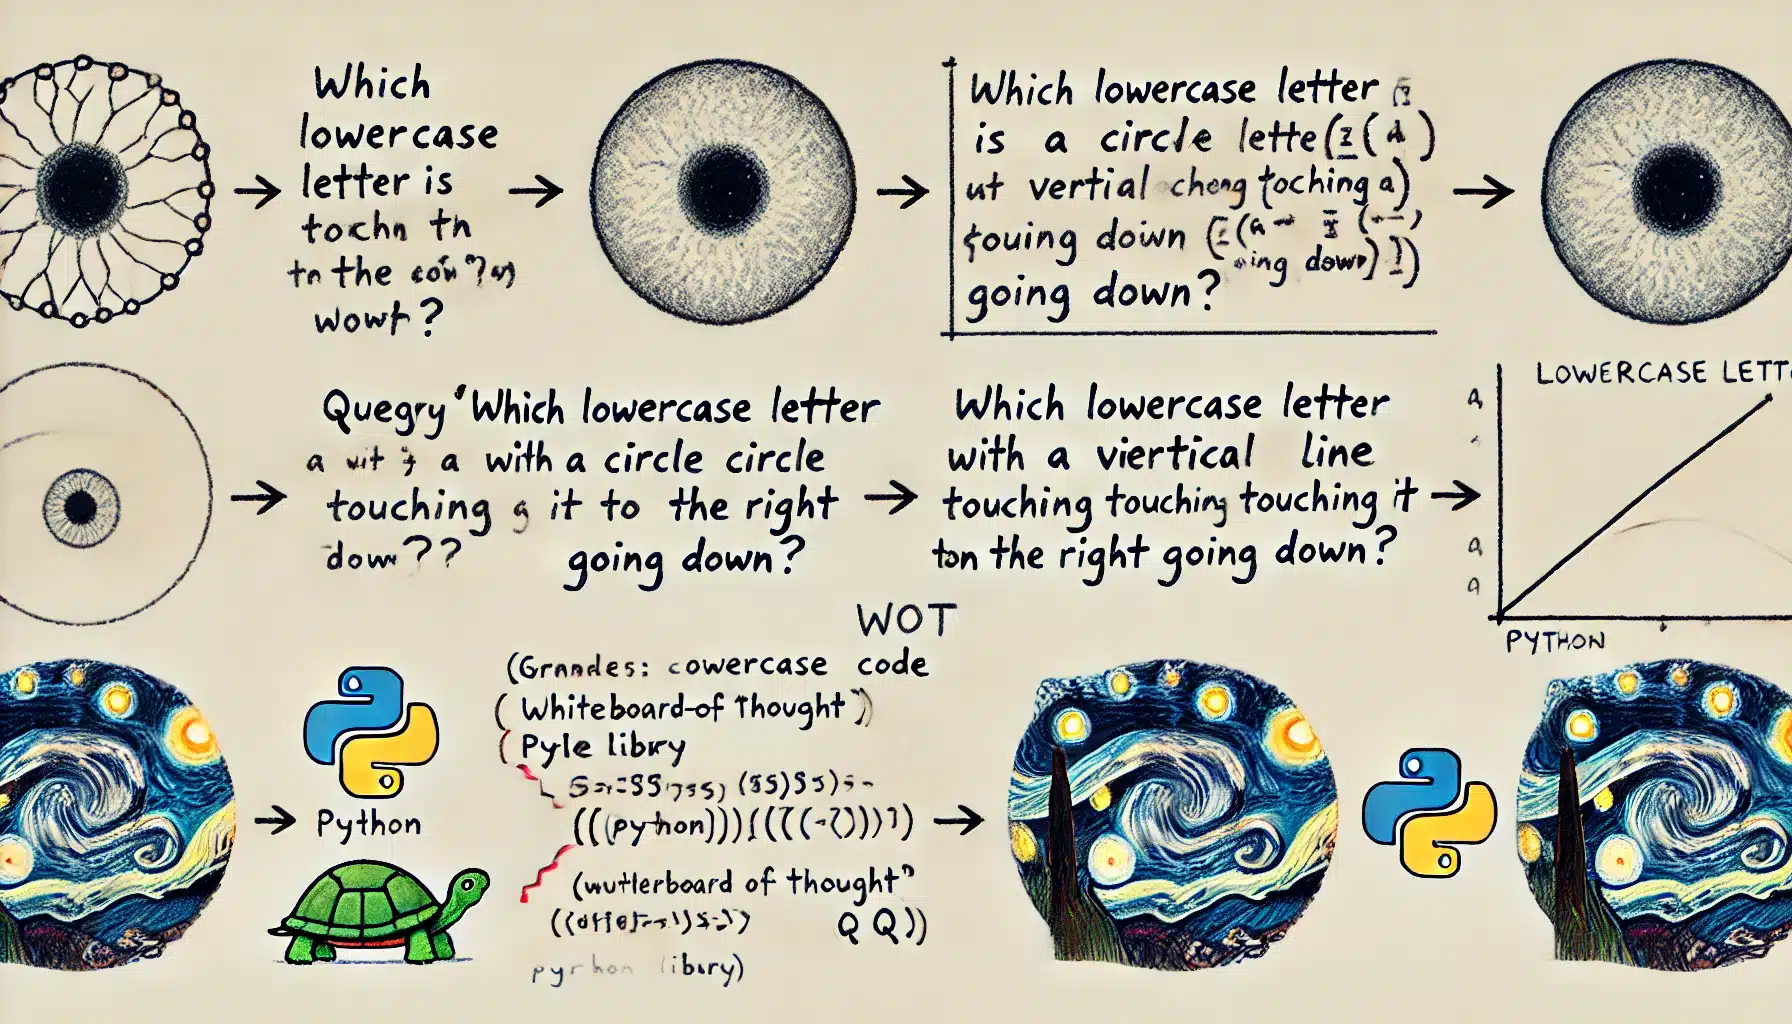 Which
lowercase
letter is
tochn th
tn the
wowt?
Which lowercase letter
is a circle lette
ut vertial cheng toching a)
touing down
ing down)
going down?
Quegry "Which lowercase letter
a wit a with a circle circle
touching g it to the right
down??
going down?
Which lowercase letter
with a viertical line
touching touching touching it
ton the right going down?
LOWERCASE LETT
a
a
a
PYTHON
WOT
(Grandes: cowercase code
(Whiteboard-of Thought"))
(Pyle librry
(((python)))
Python
(wutlerboard of thought"
Q Q))
pyrhon library)